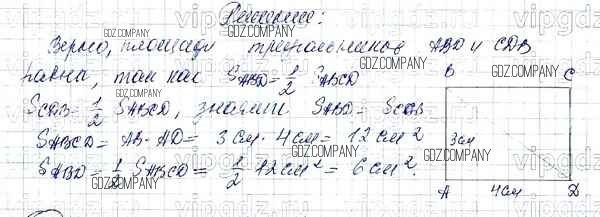 Решение:
Верно, площади треугольников ABD и CDB
равны, так как S_ABD = 1/2 S_ABCD
S_CDB = 1/2 S_ABCD, значит S_ABD = S_CDB
S_ABCD = AB · AD = 3 см · 4 см = 12 см²
S_ABD = 1/2 S_ABCD = 1/2 · 12 см² = 6 см².
B C
3 см
A 4 см D
GDZ.COMPANY
vipgdz.ru